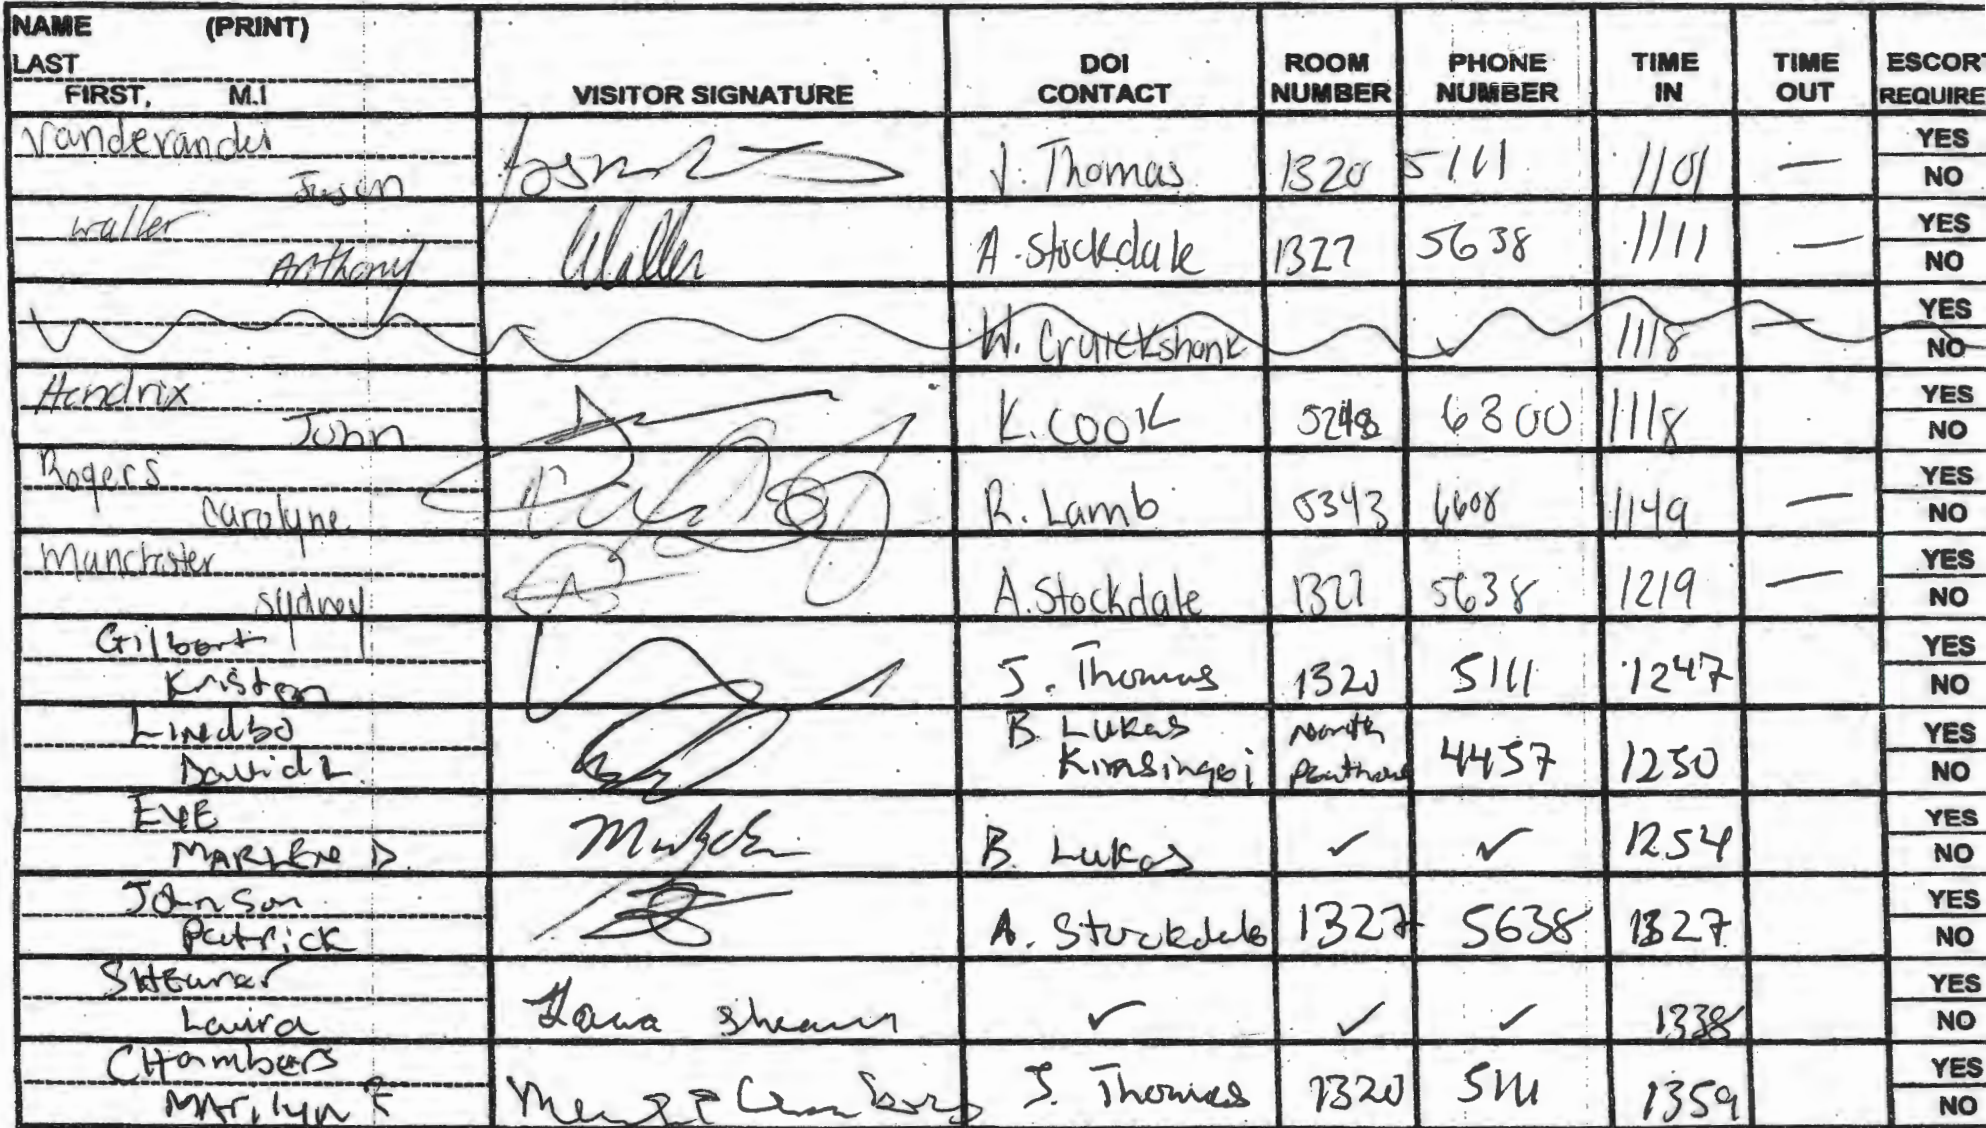 NAME (PRINT)
LAST
FIRST, M.I
VISITOR SIGNATURE
DOI
CONTACT
ROOM
NUMBER
PHONE
NUMBER
TIME
IN
TIME
OUT
ESCORT
REQUIRE
Vanderander
Jason
J. Thomas 1320 5111 1101 —
YES
NO
Waller
Anthony
Waller
A. Stockdale 1327 5638 1111 —
YES
NO
W. Cruickshank 1118 —
YES
NO
Hendrix
John
K. Cook 5248 6300 1118
YES
NO
Rogers
Carolyne
R. Lamb 0343 6608 1149 —
YES
NO
Manchester
Sydney
A. Stockdale 1327 5638 1219 —
YES
NO
Gilbert
Kristen
J. Thomas 1320 5111 1247
YES
NO
Lindbo
David L.
B. Lukas North 4457 1250
YES
NO
EVE
MARLEN D.
B. Lukas ✓ ✓ 1254
YES
NO
Johnson
Patrick
A. Stockdale 1327 5638 1327
YES
NO
Shearer
Laura
✓ ✓ ✓ 1338
YES
NO
Chambers
Marilyn F
J. Thomas 1320 5111 1359
YES
NO